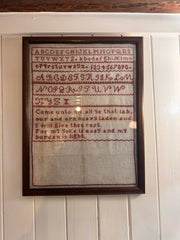 ABCDEFGHIJKLMNOPQRS
TUVWXYZ. abcdefghijklmn
opqrstuvwxyz. 1234567890.
ABCDEFGHIJKLM
NOPQRSTUVW
XYZ
Come unto me all ye that lab,
our and are heavy laden and
I will give thee rest.
For my Yoke is easy and my
burden is light.